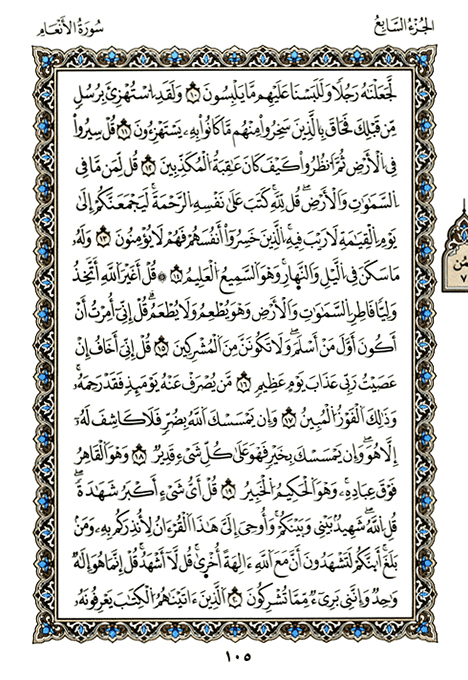 الجزء السابع
سورة الأنعام
لَّجَعَلْنَٰهُ رَجُلًا وَلَلَبَسْنَا عَلَيْهِم مَّا يَلْبِسُونَ ١٠ وَلَقَدِ ٱسْتُهْزِئَ بِرُسُلٍ
مِّن قَبْلِكَ فَحَاقَ بِالَّذِينَ سَخِرُوا۟ مِنْهُم مَّا كَانُوا۟ بِهِۦ يَسْتَهْزِءُونَ ١١ قُلْ سِيرُوا۟
فِي ٱلْأَرْضِ ثُمَّ ٱنظُرُوا۟ كَيْفَ كَانَ عَٰقِبَةُ ٱلْمُكَذِّبِينَ ١٢ قُل لِّمَن مَّا فِي
ٱلسَّمَٰوَٰتِ وَٱلْأَرْضِ قُل لِّلَّهِ كَتَبَ عَلَىٰ نَفْسِهِ ٱلرَّحْمَةَ لَيَجْمَعَنَّكُمْ إِلَىٰ
يَوْمِ ٱلْقِيَٰمَةِ لَا رَيْبَ فِيهِ ٱلَّذِينَ خَسِرُوٓا۟ أَنفُسَهُمْ فَهُمْ لَا يُؤْمِنُونَ ١٣ وَلَهُۥ
مَا سَكَنَ فِي ٱلَّيْلِ وَٱلنَّهَارِ وَهُوَ ٱلسَّمِيعُ ٱلْعَلِيمُ ١٤ قُلْ أَغَيْرَ ٱللَّهِ أَتَّخِذُ
وَلِيًّا فَاطِرِ ٱلسَّمَٰوَٰتِ وَٱلْأَرْضِ وَهْوَ يُطْعِمُ وَلَا يُطْعَمُ قُلْ إِنِّيٓ أُمِرْتُ أَنْ
أَكُونَ أَوَّلَ مَنْ أَسْلَمَ وَلَا تَكُونَنَّ مِنَ ٱلْمُشْرِكِينَ ١٥ قُلْ إِنِّيٓ أَخَافُ إِنْ
عَصَيْتُ رَبِّي عَذَابَ يَوْمٍ عَظِيمٍ ١٦ مَّن يُصْرَفْ عَنْهُ يَوْمَئِذٍ فَقَدْ رَحِمَهُۥ
وَذَٰلِكَ ٱلْفَوْزُ ٱلْمُبِينُ ١٧ وَإِن يَمْسَسْكَ ٱللَّهُ بِضُرٍّ فَلَا كَاشِفَ لَهُۥٓ
إِلَّا هُوَ وَإِن يَمْسَسْكَ بِخَيْرٍ فَهْوَ عَلَىٰ كُلِّ شَيْءٍ قَدِيرٌ ١٨ وَهْوَ ٱلْقَاهِرُ
فَوْقَ عِبَادِهِۦ وَهْوَ ٱلْحَكِيمُ ٱلْخَبِيرُ ١٩ قُلْ أَيُّ شَيْءٍ أَكْبَرُ شَهَٰدَةً
قُلِ ٱللَّهُ شَهِيدٌۢ بَيْنِي وَبَيْنَكُمْ وَأُوحِيَ إِلَيَّ هَٰذَا ٱلْقُرْءَانُ لِأُنذِرَكُم بِهِۦ وَمَنۢ
بَلَغَ أَئِنَّكُمْ لَتَشْهَدُونَ أَنَّ مَعَ ٱللَّهِ ءَالِهَةً أُخْرَىٰ قُل لَّآ أَشْهَدُ قُلْ إِنَّمَا هُوَ إِلَٰهٌ
وَٰحِدٌ وَإِنَّنِي بَرِيٓءٌ مِّمَّا تُشْرِكُونَ ٢٠ ٱلَّذِينَ ءَاتَيْنَٰهُمُ ٱلْكِتَٰبَ يَعْرِفُونَهُۥ
١٠٥